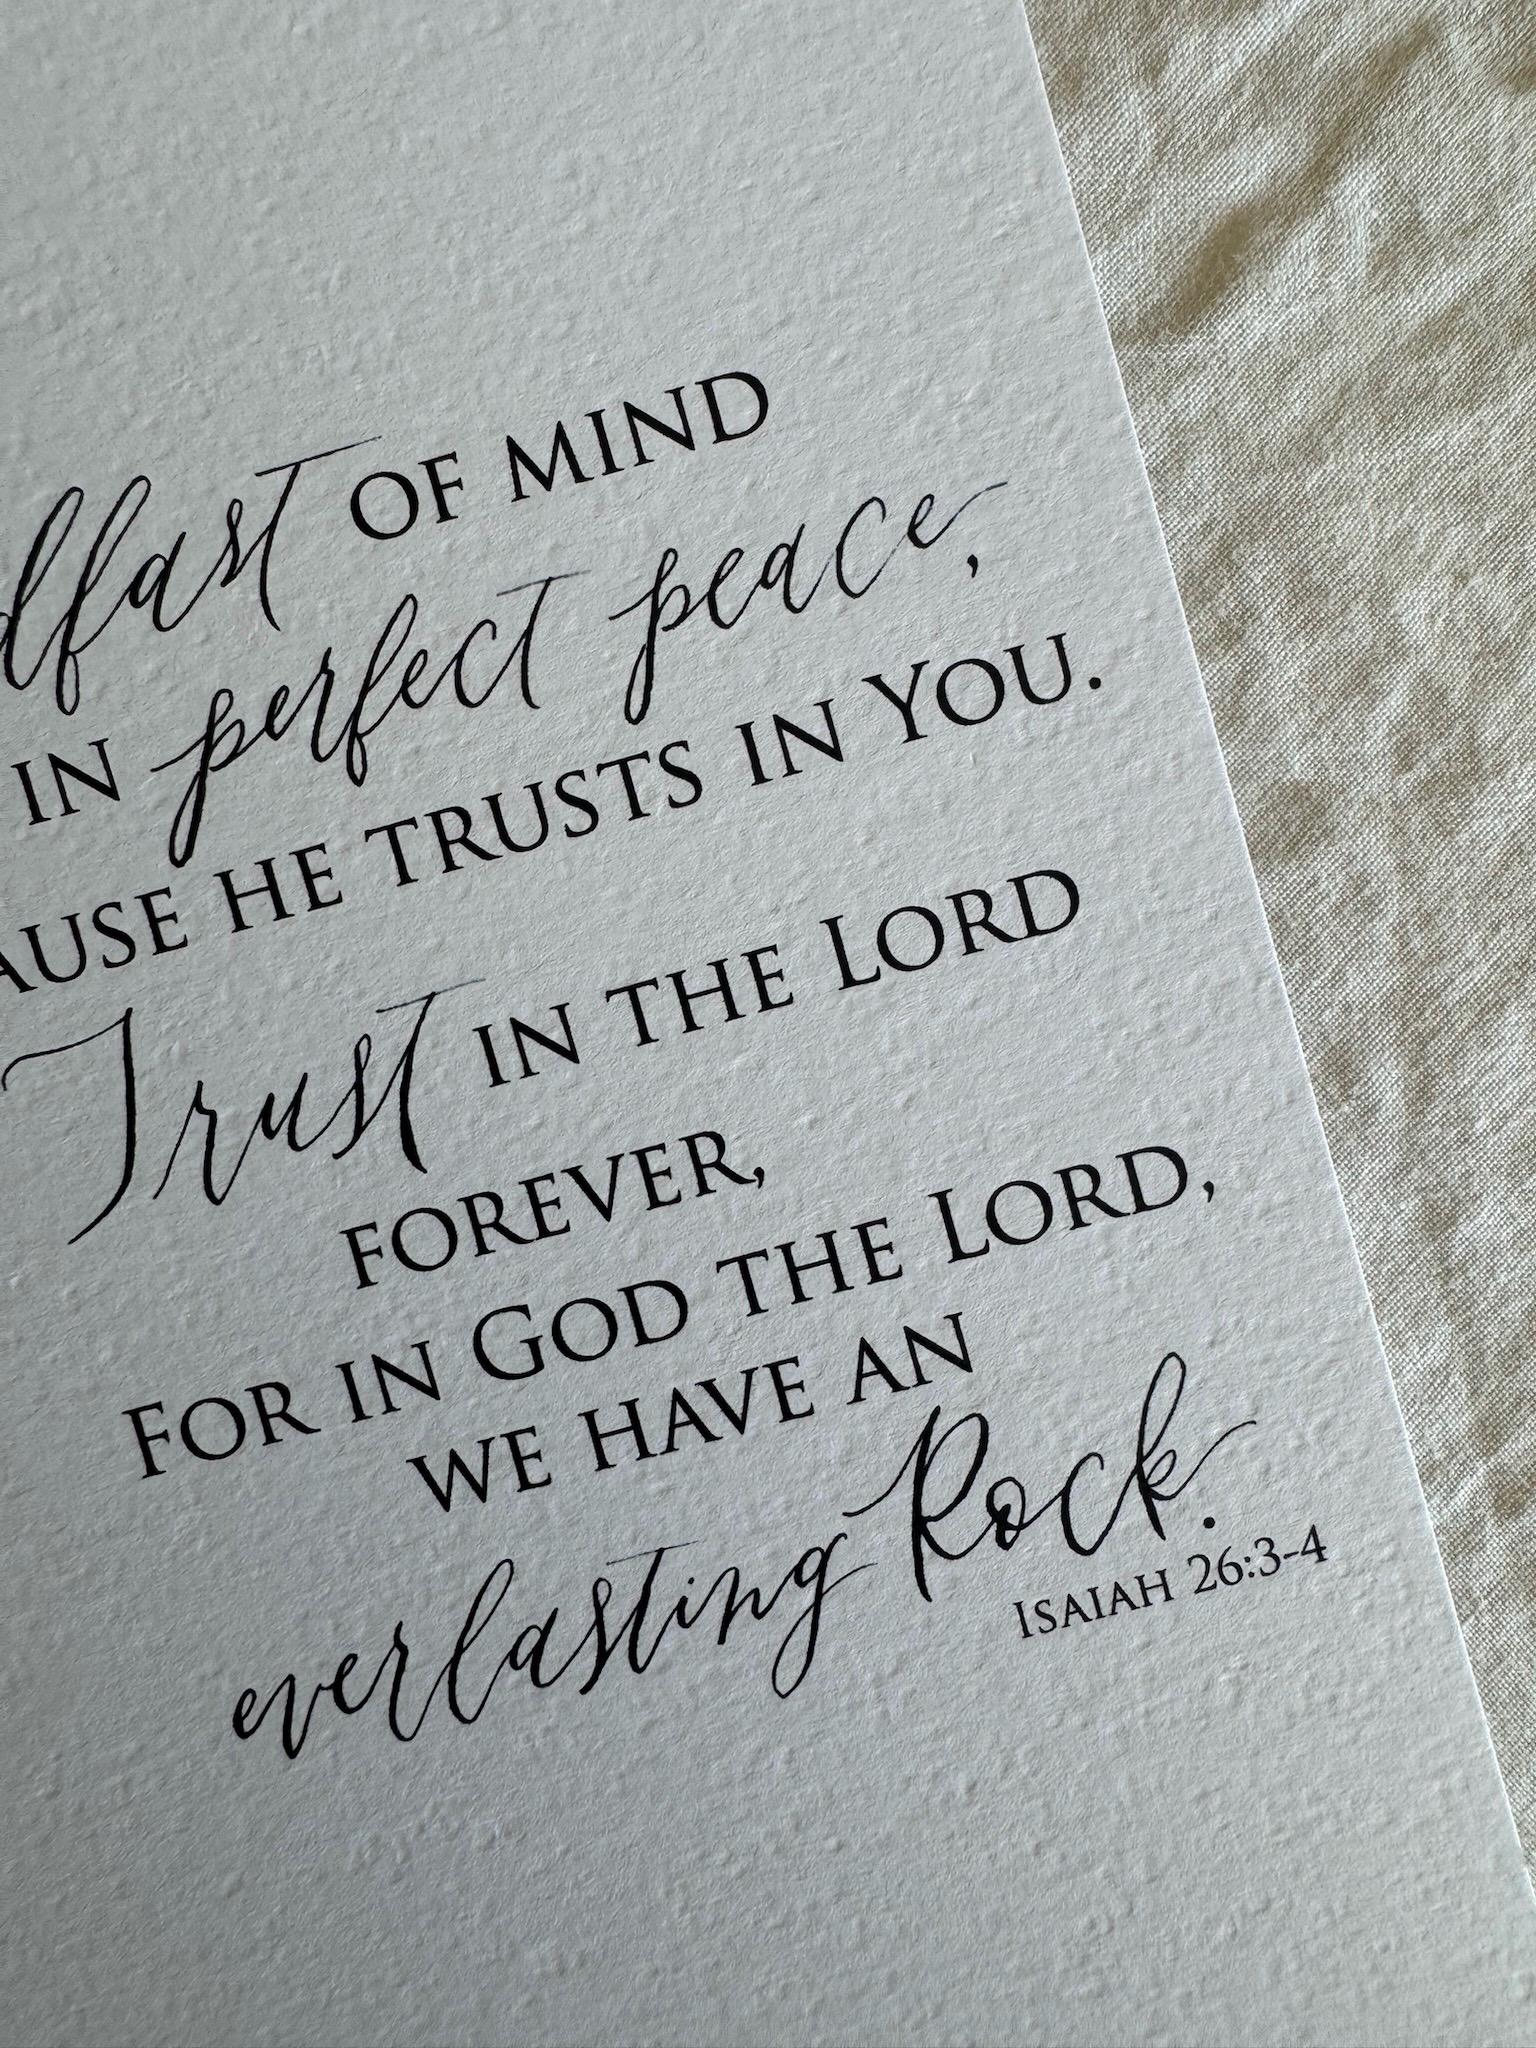 dfast OF MIND
IN perfect peace,
AUSE HE TRUSTS IN YOU.
Trust IN THE LORD
FOREVER,
FOR IN GOD THE LORD,
WE HAVE AN
everlasting Rock.
ISAIAH 26:3-4